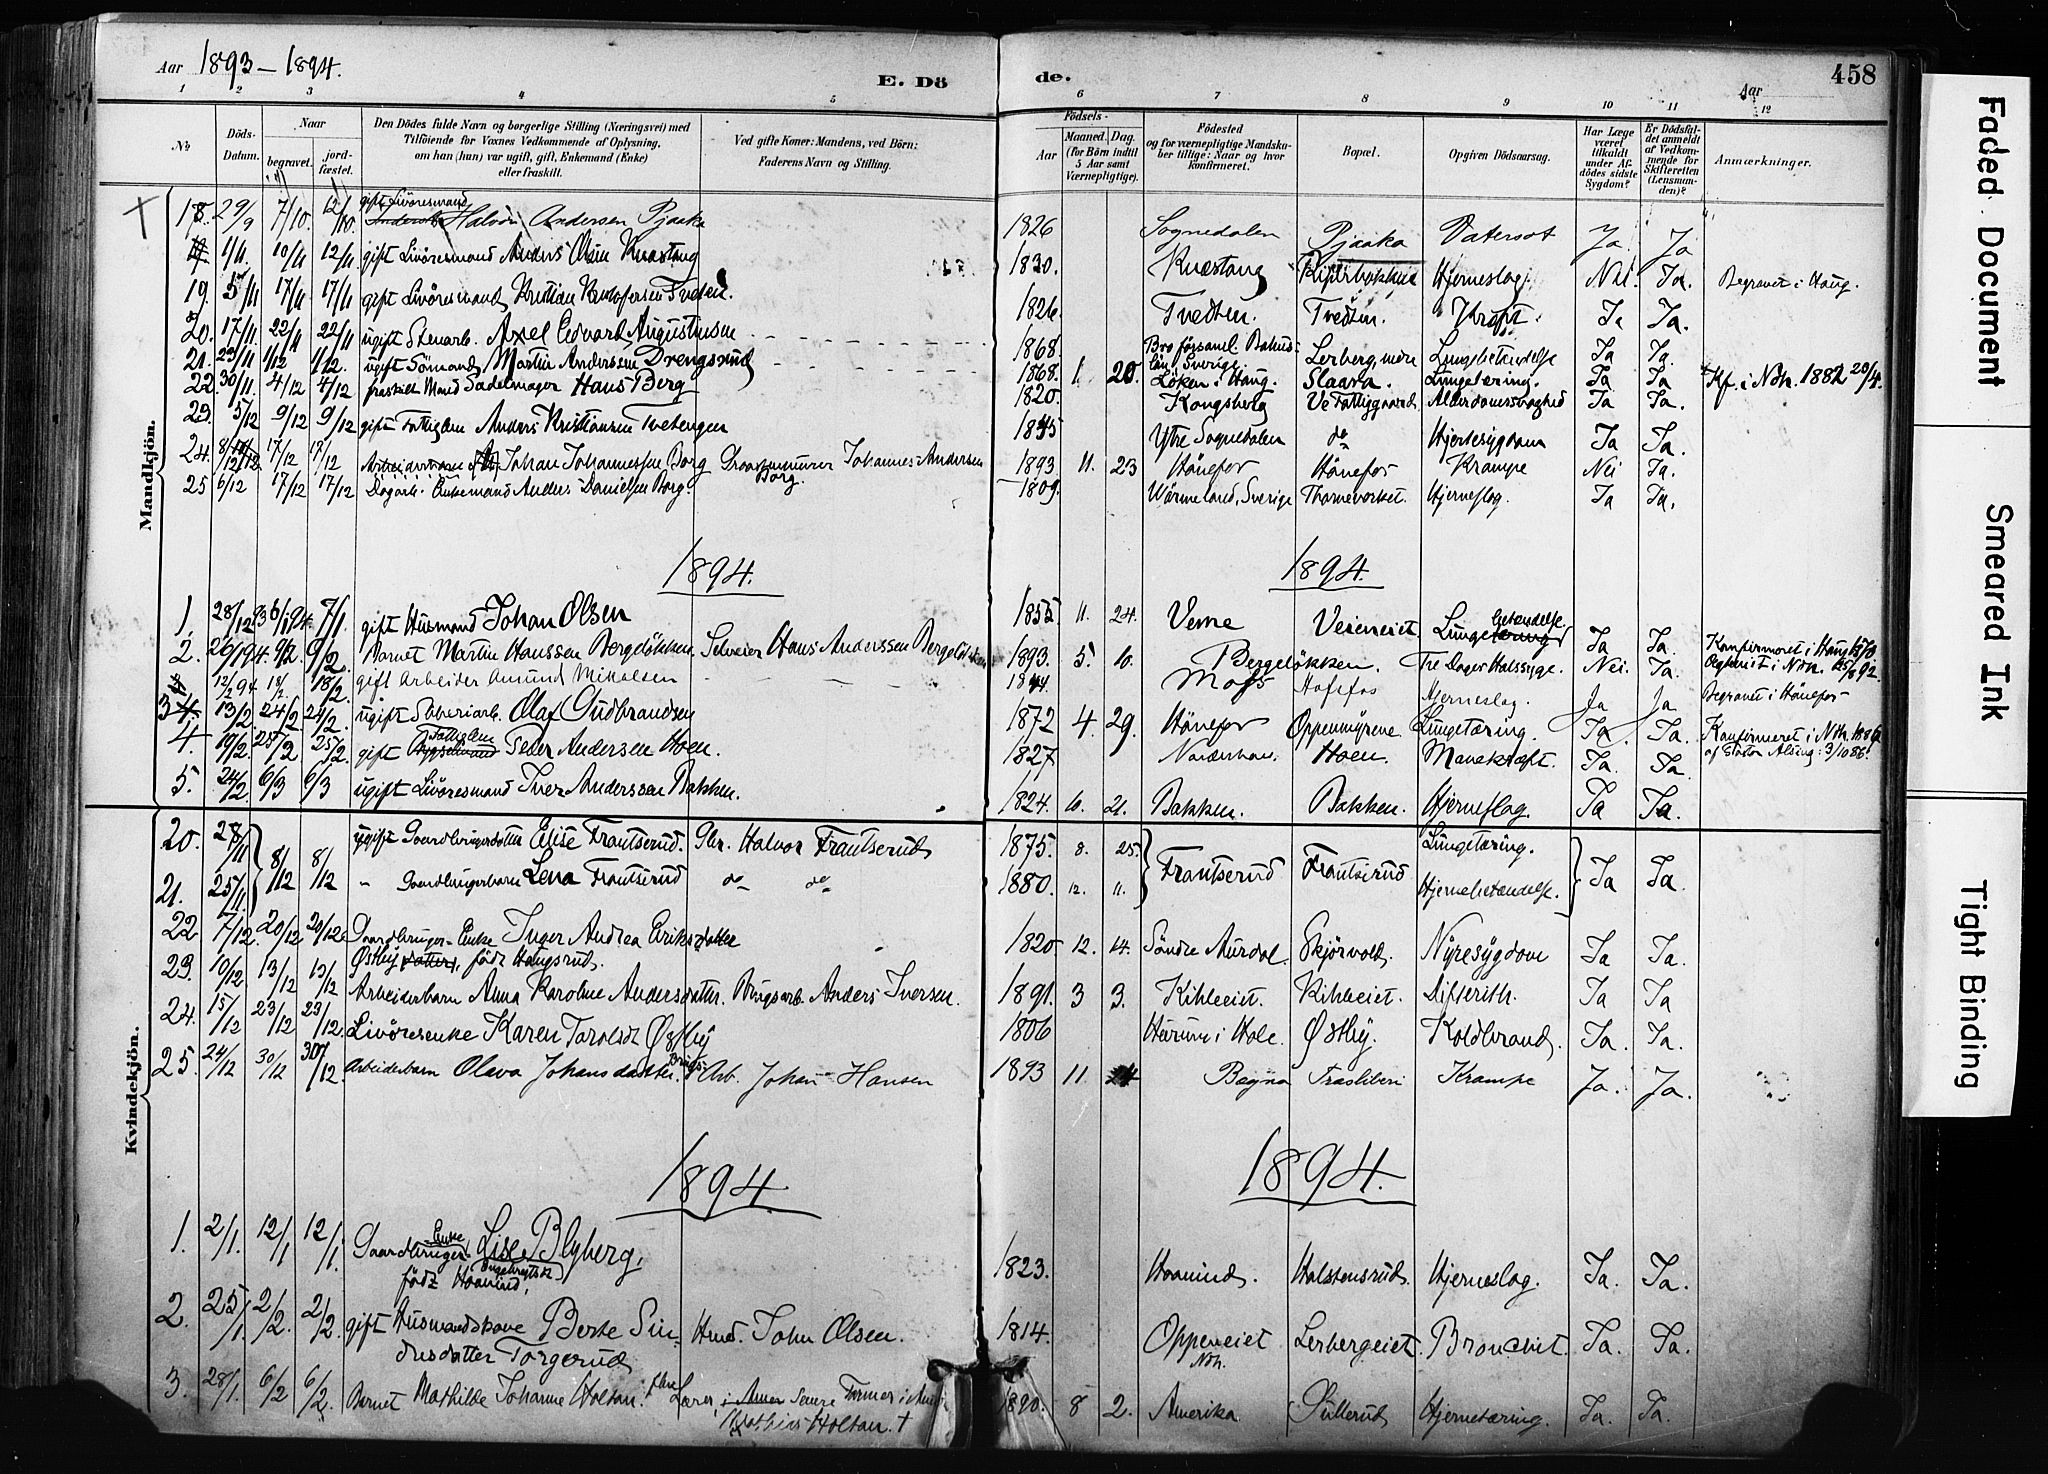 Aar 1893–1894.
E. Dö
de.
Aar
458
1 2 3 4 5 6 7 8 9 10 11 12
№
Döds-Datum.
Naar
begravet.
jord-fæstet.
Den Dödes fulde Navn og borgerlige Stilling (Næringsvei) med Tilföiende for Voxnes Vedkommende af Oplysning, om han (hun) var ugift, gift, Enkemand (Enke) eller fraskilt.
Ved gifte Koner: Mandens, ved Börn: Faderens Navn og Stilling.
Födsels-
Aar
Maaned.
Dag.
(for Börn indtil 5 Aar samt Værnepligtige).
Födested og for værnepligtige Mandskaber tillige: Naar og hvor konfirmeret.
Bopæl.
Opgiven Dödsaarsag.
Har Læge været tilkaldt under Afdödes sidste Sygdom?
Er Dödsfaldet anmeldt af Vedkommende for Skifteretten (Lensmanden)?
Anmærkninger.
Mandkjön.
18. 29/9 7/10. 12/10. gift Livöresmand Halvor Andersen Pjaaka 1826 Sognedalen Pjaaka Vatersot Ja Ja
1/11. 10/11 12/11 gift Livöresmand Anders Olsen Knestang 1830. Knestang Hjerneslag. Nei. Ja. Begravet i Haug.
19. 5/11 17/11 17/11 gift Livöresmand Kristian Kristofersen Tvedten. 1826. Tvedten. Tvedten. Kræft. Ja Ja.
20. 17/11. 22/11 22/11 ugift Stenarb. Axel Edvard Augustinsen 1868. Bro forsaml. Bohuslän, Sverige Lerberg, nere Lungebetændelse Ja Ja.
21. 23/11 1/12 1/12. ugift Sömand, Martin Andersen Drengsrud 1868. 1. 20. Löken i Haug. Slaara. Lungetæring. Ja Ja Kf. i Ndh. 1882 20/4.
22. 30/11. 4/12 4/12 fraskilt Mand Sadelmager Hans Berg 1820. Kongsberg Ve Fattiggaard Alderdomssvaghed Ja Ja.
23. 5/12 9/12 9/12 gift Fattiglem Anders Kristiansen Tvetengen 1845 Ytre Sognedalen do Hjertesygdom Ja Ja.
24. 8/12 17/12 17/12 Johan Johannesen Borg Graastensmurer Johannes Andersen Borg. 1893 11. 23 Hönefos Hönefos Krampe Nei Ja.
25 6/12 17/12 17/12 Dagarb. Enkemand Anders Danielsen Borg. 1809. Wärmeland, Sverige Hjerneslag. Ja Ja.
1894.
1894.
1. 28/12 93 6/1 94. 7/1. gift Husmand Johan Olsen 1855 11. 24. Verne Veieneiet. Lungebetændelse. Ja Ja.
2. 26/1 94. 9/2. 9/2. Barnet Martin Hanssen Bergelökken. Selveier Hans Anderssen Bergelökken 1893. 5. 10. Bergelökken. Tre Dages Halssyge. Nei. Ja.
12/2 94. 18/2. 18/2. gift Arbeider Amund Mikalsen 1844. Moss Hofsfos Hjerneslag. Ja Ja Begravet i Hönefos
3 13/2 24/2 24/2. ugift Sliberiarb. Olaf Gudbrandsen 1872 4. 29. Hönefos Oppenmyrene Lungetæring. Ja. Ja. Konfirmeret i Ndh. 1886
4. 19/2. 25/2 25/2. gift Fattiglem Peder Andersen Hoen. 1827 Norderhov. Hoen. Mavekræft. Ja. Ja
5. 24/2. 6/3 6/3 ugift Livöresmand Iver Anderssen Bakken. 1824. 6. 21. Bakken. Bakken. Hjerneslag. Ja Ja
Kvindekjön.
20. 28/11 8/12 8/12 ugift Gaardbrugerdatter Elise Frautserud. Gbr. Halvor Frautserud 1875. 8. 25. Frautserud Frautserud Lungetæring. Ja Ja.
21. 25/11. " Gaardbrugerbarn Lena Frautserud do do 1880. 12. 11. Hjernebetændelse.
22 7/12. 20/12 20/12 Gaardbruger-Enke Inger Andrea Eriksdatter Østby, født Haugsrud. 1820. 12. 14. Söndre Aurdal. Skjörvold. Nyresygdom Ja Ja.
23. 10/12 13/12 13/12 Arbeiderbarn Anna Karoline Andersdatter. Brugsarb. Anders Iversen. 1891. 3 3. Kihleeiet. Kihleeiet. Difterith. Ja Ja
24. 15/12 23/12 23/12. Livöresenke Karen Tarolsdt Østby 1806 Hurum i Hole. Østby. Koldbrand. Ja. Ja.
25. 24/12 30/12 30/12. Arbeiderbarn Olava Johansdatter. Brugs-Arb. Johan Hansen 1893 11 24 Begna Krampe Ja. Ja.
1894
1894.
1. 2/1. 12/1 12/1. Gaardbruger Enke Lise Blyberg, födt Haamind. 1823. Haamind. Halstensrud. Hjerneslag. Ja. Ja.
2. 25/1. 2/2. 2/2. gift Husmandskone Berte Sin-dresdatter Torgerud Hmd. John Olsen. 1814. Oppeneiet Ndh. Lerbergeiet. Bronchit. Ja. Ja.
3. 28/1. 6/2 6/2. Barnet Mathilde Johanne Holtan. Lærer, senere Farmer i Amer. Mathias Holtan. † 1890. 8 2. Amerika Sillerud Hjernetæring. Ja. Ja.
Faded Document
Smeared Ink
Tight Binding